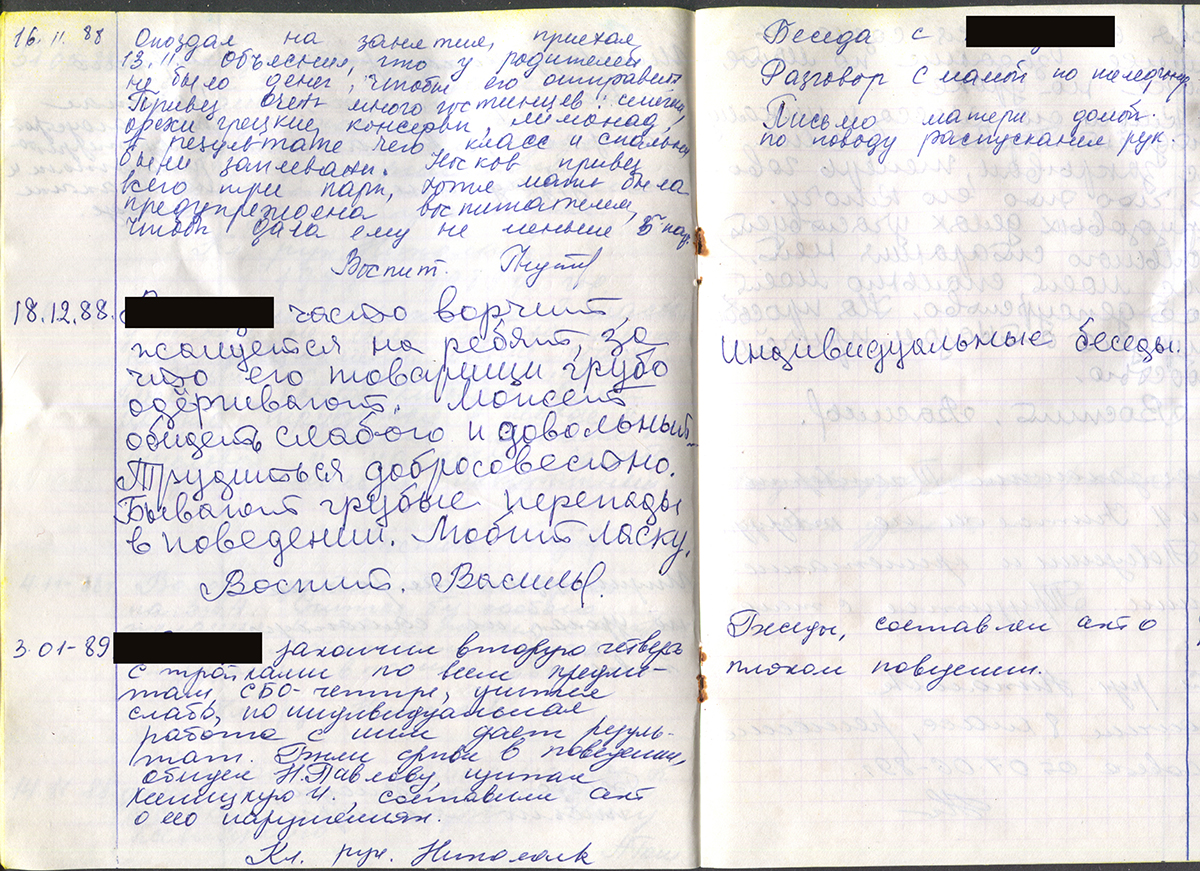 16.11.88
Опоздал на занятия, приехал
13.11. Объяснил, что у родителей
не было денег, чтобы его отправить
Привез очень много гостинцев!! семечки,
орехи грецкие, консервы, лимонад,
в результате чего класс и спальня
были заплеваны. Носков привез
всего три пары, хотя мать была
предупреждена воспитателем,
чтобы дала ему не меньше 5 пар.
Воспит.
Беседа с
Разговор с мамой по
Письмо матери домой.
по поводу распускания рук.
18.12.88.
часто ворчит
жалуется на ребят, за
что его товарищи грубо
одёргивают. Может
обидеть слабого и довольный.
Трудиться добросовестно.
Бывают грубые перепады
в поведении. Любит ласку.
Воспит. Василь
Индивидуальные беседы.
3.01-89
закончил вторую четверть
с тройками по всем предме-
там, СБО-четыре, учится
слабо, но индивидуальная
работа с ним дает резуль-
тат. Были срывы в поведении,
обидел Н.Павлову, щипал
составили акт
о его нарушениях.
Кл. рук.
Беседы, составлен акт о
плохом поведении.